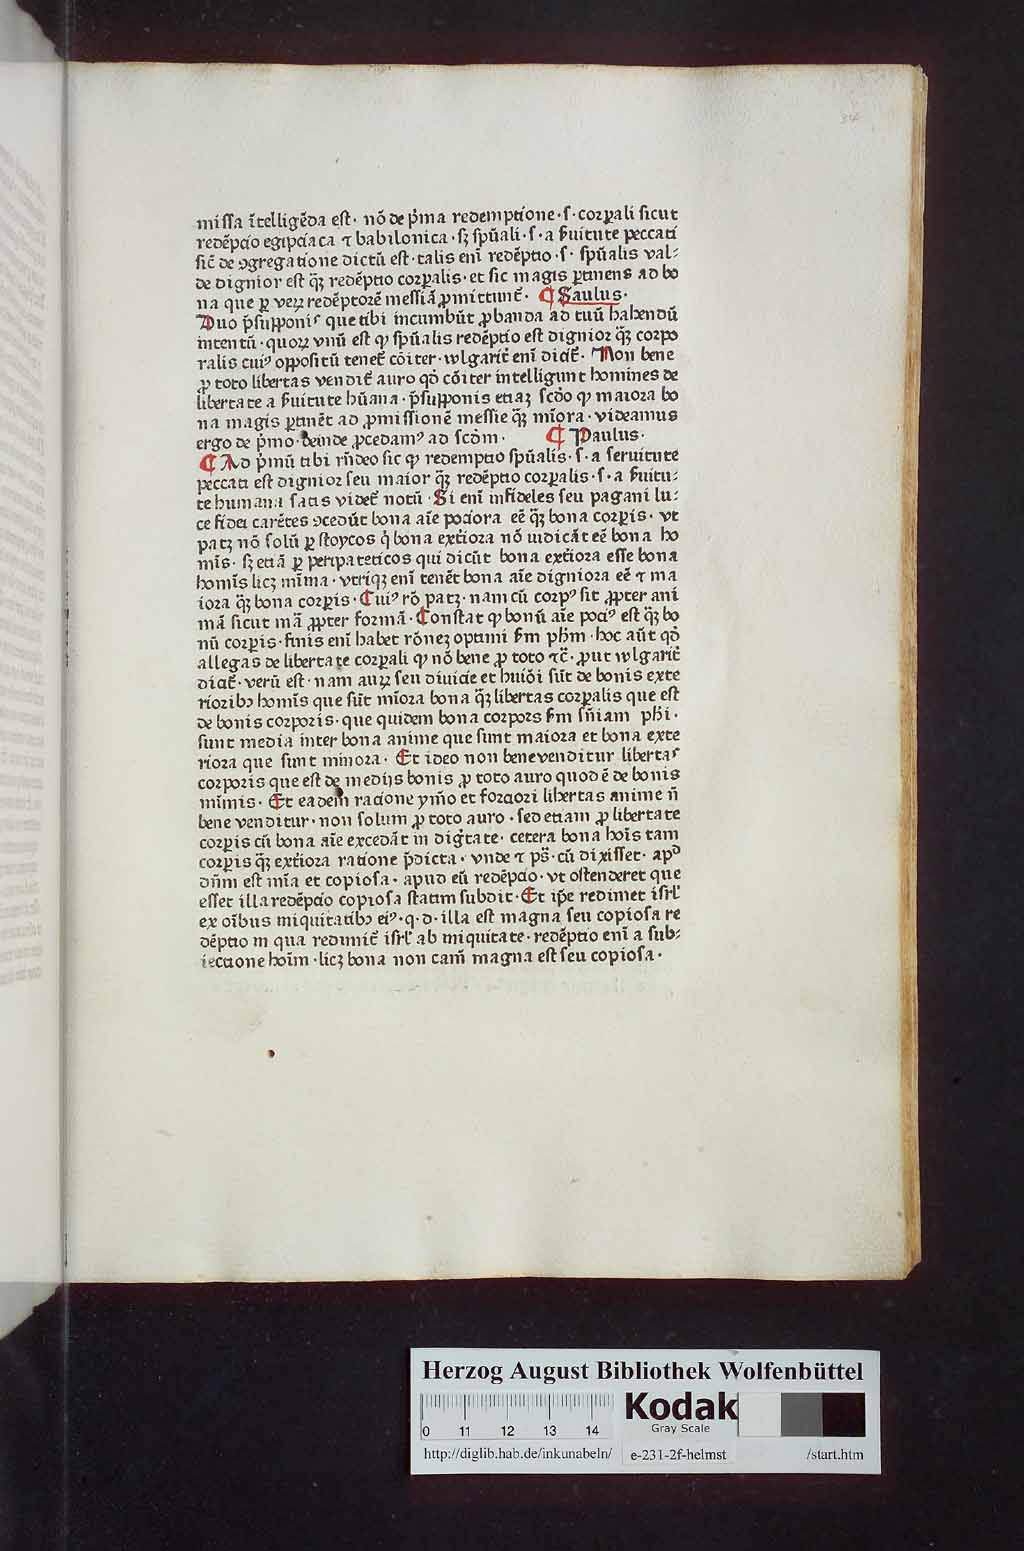 missa ĩtelligẽda est· nõ de p̃ma redemptione·s·corꝑali sicut
redẽpcio egipciaca ⁊ babilonica·sꝫ spũali·s·a s̃uitute peccati
sic̃ de ꝯgregatione dictũ est·talis enĩ redẽptio·s·spũalis val⸗
de dignior est q̃ꝫ redẽptio corꝑalis·et sic magis ꝑtinens ad bo
na que ꝑ veꝝ redẽptorẽ messiã ꝓmittunt̃· ¶ Saulus·
Duo p̃supponis que tibi incumbũt ꝓbanda ad tuũ habendũ
intentũ·quoꝝ vnũ est ꝙ spũalis redẽptio est dignior q̃ꝫ corpo
ralis cuiꝰ oppositũ tenet̃ cõiter·wlgarit̃ enĩ dicit̃· Non bene
ꝓ toto libertas vendit̃ auro qđ cõiter intelligunt homines de
libertate a s̃uitute hũana·p̃supponis etiaꝫ scđo ꝙ maiora bo
na magis ꝑtinẽt ad ꝓmissionẽ messie q̃ꝫ mĩora·videamus
ergo de p̃mo·deinde ꝓcedamꝰ ad scđm· ¶ Paulus·
¶ Ad p̃mũ tibi rñdeo sic ꝙ redemptio spũalis·s·a seruitute
peccati est dignior seu maior q̃ꝫ redẽptio corꝑalis·s·a s̃uitu⸗
te humana satis videt̃ notũ·Si enĩ infideles seu pagani lu⸗
ce fidei carẽtes ꝯcedũt bona aĩe pociora eẽ q̃ꝫ bona corꝑis·vt
patꝫ nõ solũ ꝑ stoycos q̃ bona ext̃iora nõ iudicãt eẽ bona ho
mĩs·sꝫ etiã ꝑ peripateticos qui dicũt bona ext̃iora esse bona
homĩs licꝫ mĩma·vtriqꝫ enĩ tenẽt bona aĩe digniora eẽ ⁊ ma
iora q̃ꝫ bona corꝑis·Cuiꝰ rõ patꝫ·nam cũ corpꝰ sit ꝓpter ani
mã sicut mã ꝓpter formã·Constat ꝙ bonũ aĩe pociꝰ est q̃ꝫ bo
nũ corꝑis·finis enĩ habet rõneꝫ optimi s̃m ph̃m·hoc aũt qđ
allegas de libertate corꝑali ꝙ nõ bene ꝓ toto ⁊c̃·ꝓut wlgarit̃
dicit̃·verũ est·nam auꝝ seu diuicie et huiõi sũt de bonis exte
rioribꝫ homĩs que sũt mĩora bona q̃ꝫ libertas corꝑalis que est
de bonis corporis·que quidem bona corpors s̃m sñiam ph̃i·
sunt media inter bona anime que sunt maiora et bona exte
riora que sunt minora· Et ideo non bene venditur libertas
corporis que est de medijs bonis ꝓ toto auro quod ẽ de bonis
mĩmis· Et eadem racione ymõ et forciori libertas anime ñ
bene venditur·non solum ꝓ toto auro·sed etiam ꝓ libertate
corꝑis cũ bona aĩe excedãt in dig̃tate·cetera bona hoĩs tam
corꝑis q̃ꝫ ext̃iora ratione p̃dicta·vnde ⁊ ps̃·cũ dixisset·apđ
dñm est mĩa et copiosa·apud eũ redẽpcio·vt ostenderet que
esset illa redẽpcio copiosa statim subdit·Et ip̃e redimet isrl̃
ex oĩbus iniquitatibꝫ eiꝰ·q·d·illa est magna seu copiosa re
dẽptio in qua redimit̃ isrl̃ ab iniquitate·redẽptio enĩ a sub⸗
iectione hoĩm·licꝫ bona non cam̃ magna est seu copiosa·
Herzog August Bibliothek Wolfenbüttel
0 11 12 13 14
Kodak
Gray Scale
http://diglib.hab.de/inkunabeln/ e-231-2f-helmst /start.htm